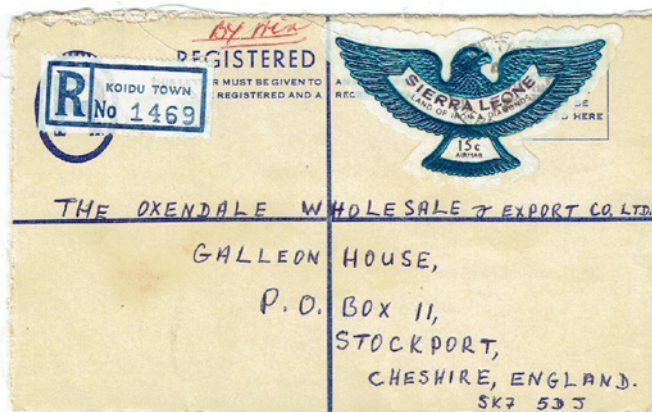 BY AIR
REGISTERED
R KOIDU TOWN
No 1469
MUST BE GIVEN TO
REGISTERED AND A
BE
HERE
SIERRA LEONE
LAND OF IRON & DIAMONDS
15c
AIRMAIL
THE OXENDALE WHOLESALE & EXPORT CO. LTD.
GALLEON HOUSE,
P.O. BOX 11,
STOCKPORT,
CHESHIRE, ENGLAND.
SK7 5DJ